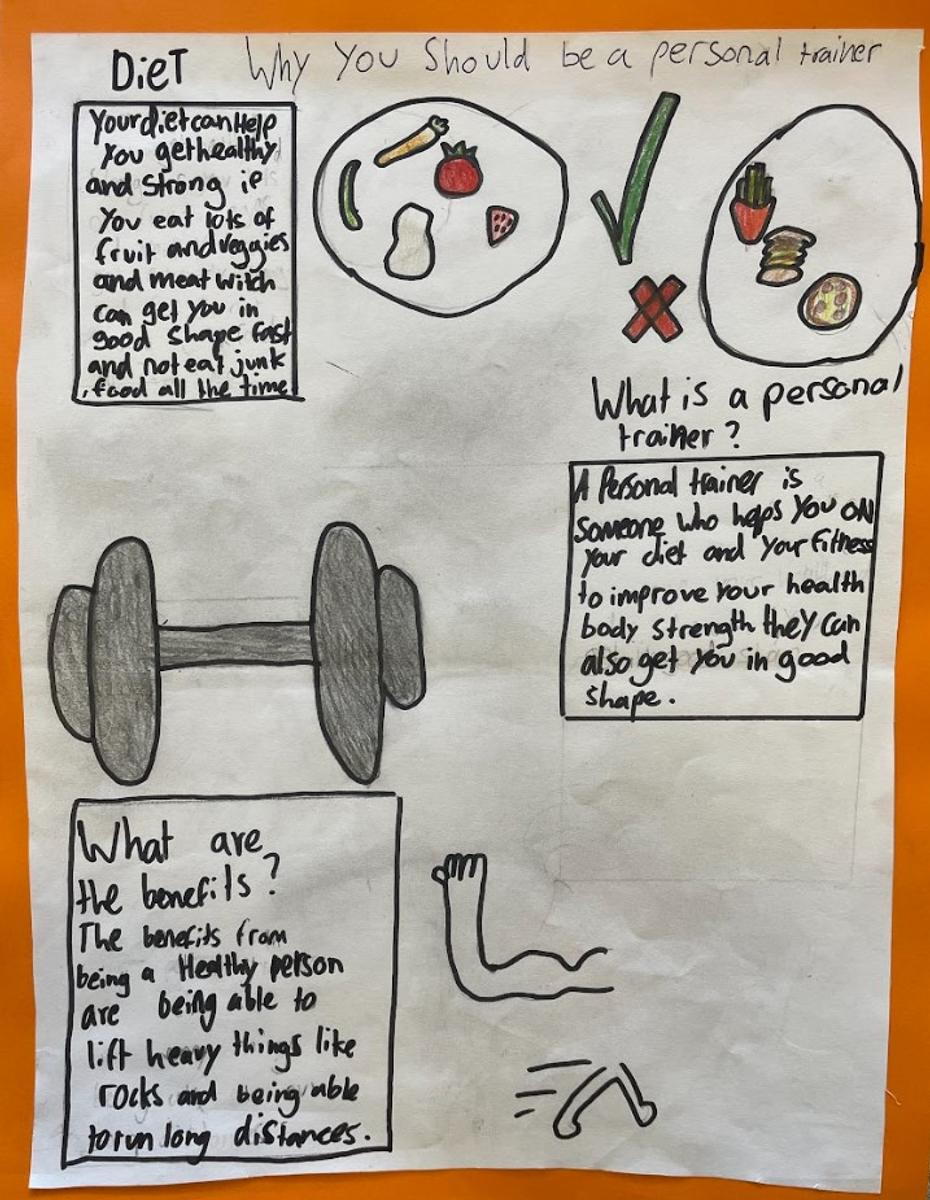 Why You Should be a personal trainer
DieT
Your diet can Help
You get healthy
and Strong if
You eat lots of
fruit and veggies
and meat witch
can get you in
good shape fast
and not eat junk
food all the time
What is a personal
trainer?
A Personal trainer is
someone who helps you on
your diet and your fitness
to improve your health
body strength they can
also get you in good
shape.
What are
the benefits?
The benefits from
being a Healthy person
are being able to
lift heavy things like
rocks and being able
to run long distances.